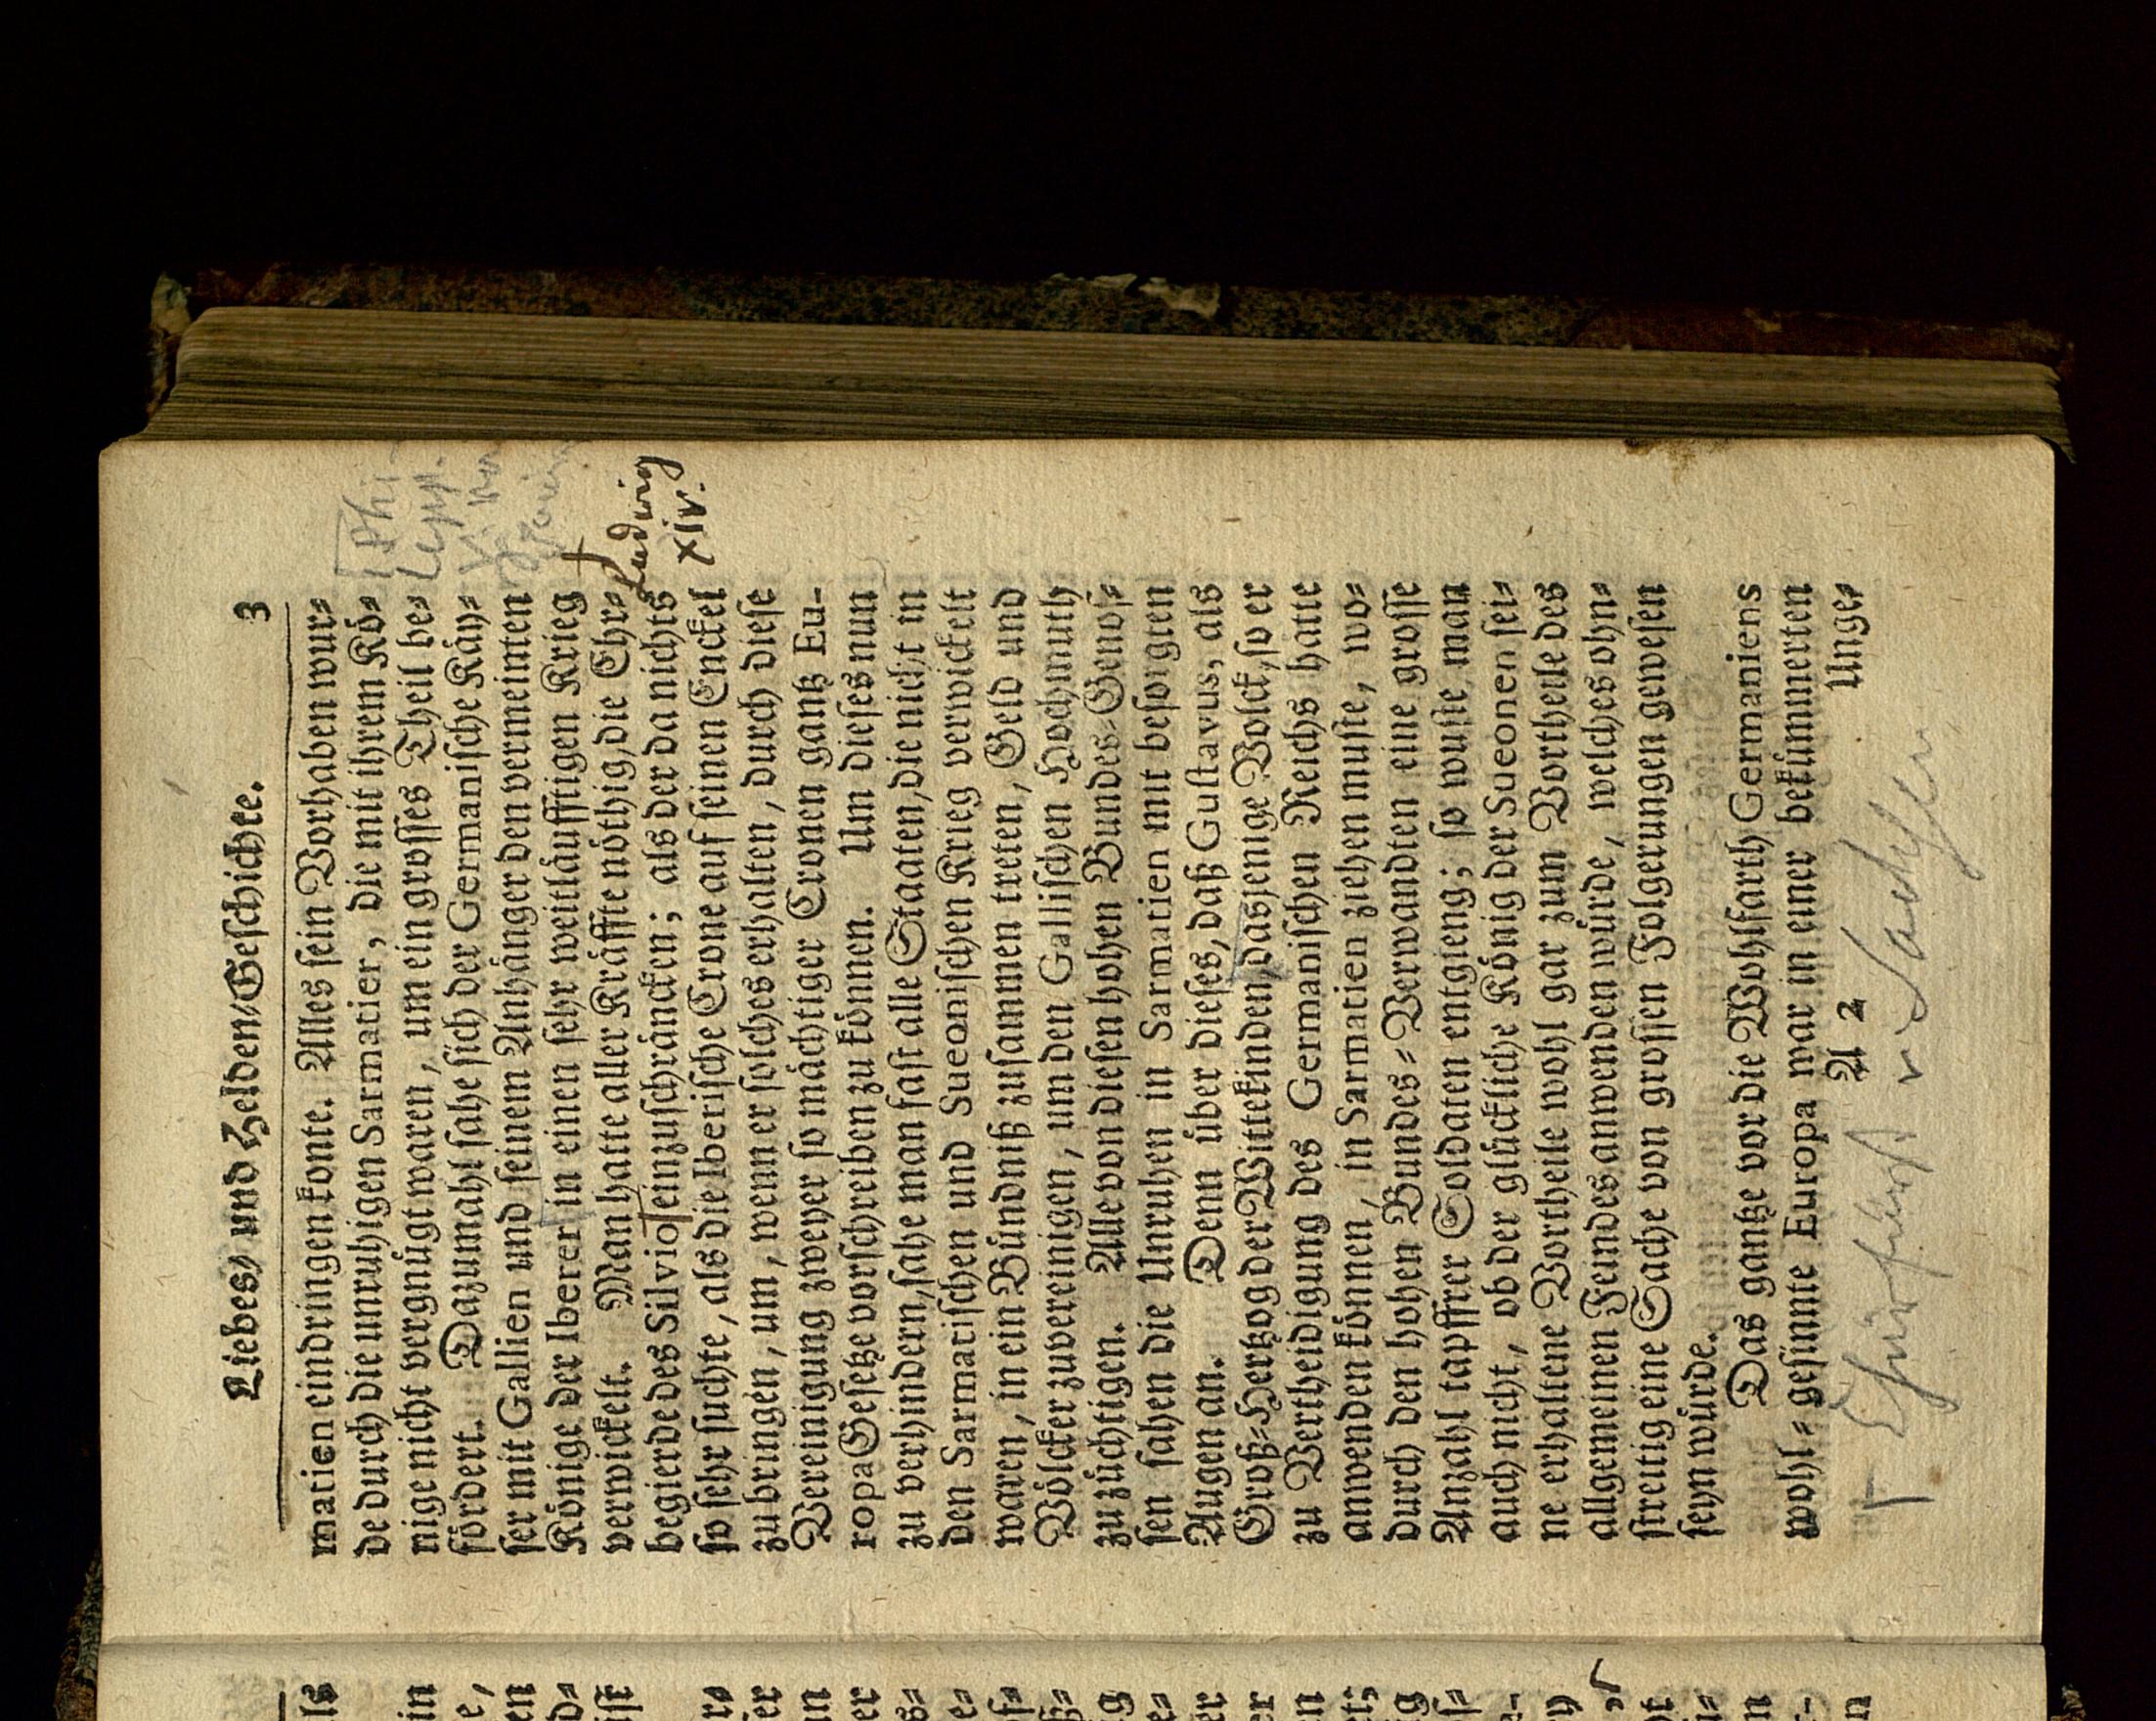 Liebes- und Helden-Geschichte. 3
matien eindringen konte. Alles sein Vorhaben wur-
de durch die unruhigen Sarmatier, die mit ihrem Kö-
nige nicht vergnügt waren, um ein grosses Theil be-
fördert. Dazumahl sahe sich der Germanische Käy-
ser mit Gallien und seinem Anhänger den vermeinten
Könige der Iberer in einen sehr weitläufftigen Krieg
verwickelt. Man hatte aller Kräffte nöthig, die Ehr-
begierde des Silvio einzuschräncken; als der da nichts
so sehr suchte, als die Iberische Crone auf seinen Enckel
zu bringen, um, wenn er solches erhalten, durch diese
Vereinigung zweyer so mächtiger Cronen gantz Eu-
ropa Gesetze vorschreiben zu können. Um dieses nun
zu verhindern, sahe man fast alle Staaten, die nicht in
den Sarmatischen und Sueonischen Krieg verwickelt
waren, in ein Bündniß zusammen treten, Geld und
Völcker zu vereinigen, um den Gallischen Hochmuth
zu züchtigen. Alle von diesen hohen Bundes-Genos-
sen sahen die Unruhen in Sarmatien mit besorgten
Augen an. Denn über dieses, daß Gustavus, als
Groß-Hertzog der Wittekinden, dasjenige Volck, so er
zu Vertheidigung des Germanischen Reichs hatte
anwenden können, in Sarmatien ziehen muste, wo-
durch den hohen Bundes-Verwandten eine grosse
Anzahl tapffrer Soldaten entgieng; so wuste man
auch nicht, ob der glückliche König der Sueonen sei-
ne erhaltene Vortheile wohl gar zum Vortheile des
allgemeinen Feindes anwenden würde, welches ohn-
streitig eine Sache von grossen Folgerungen gewesen
seyn würde.
Das gantze vor die Wohlfarth Germaniens
wohl-gesinnte Europa war in einer bekümmerten
A 2 Unge-
Phi-
lipp.
V. von
Ludwig
XIV.
Churfürst v. Sachsen